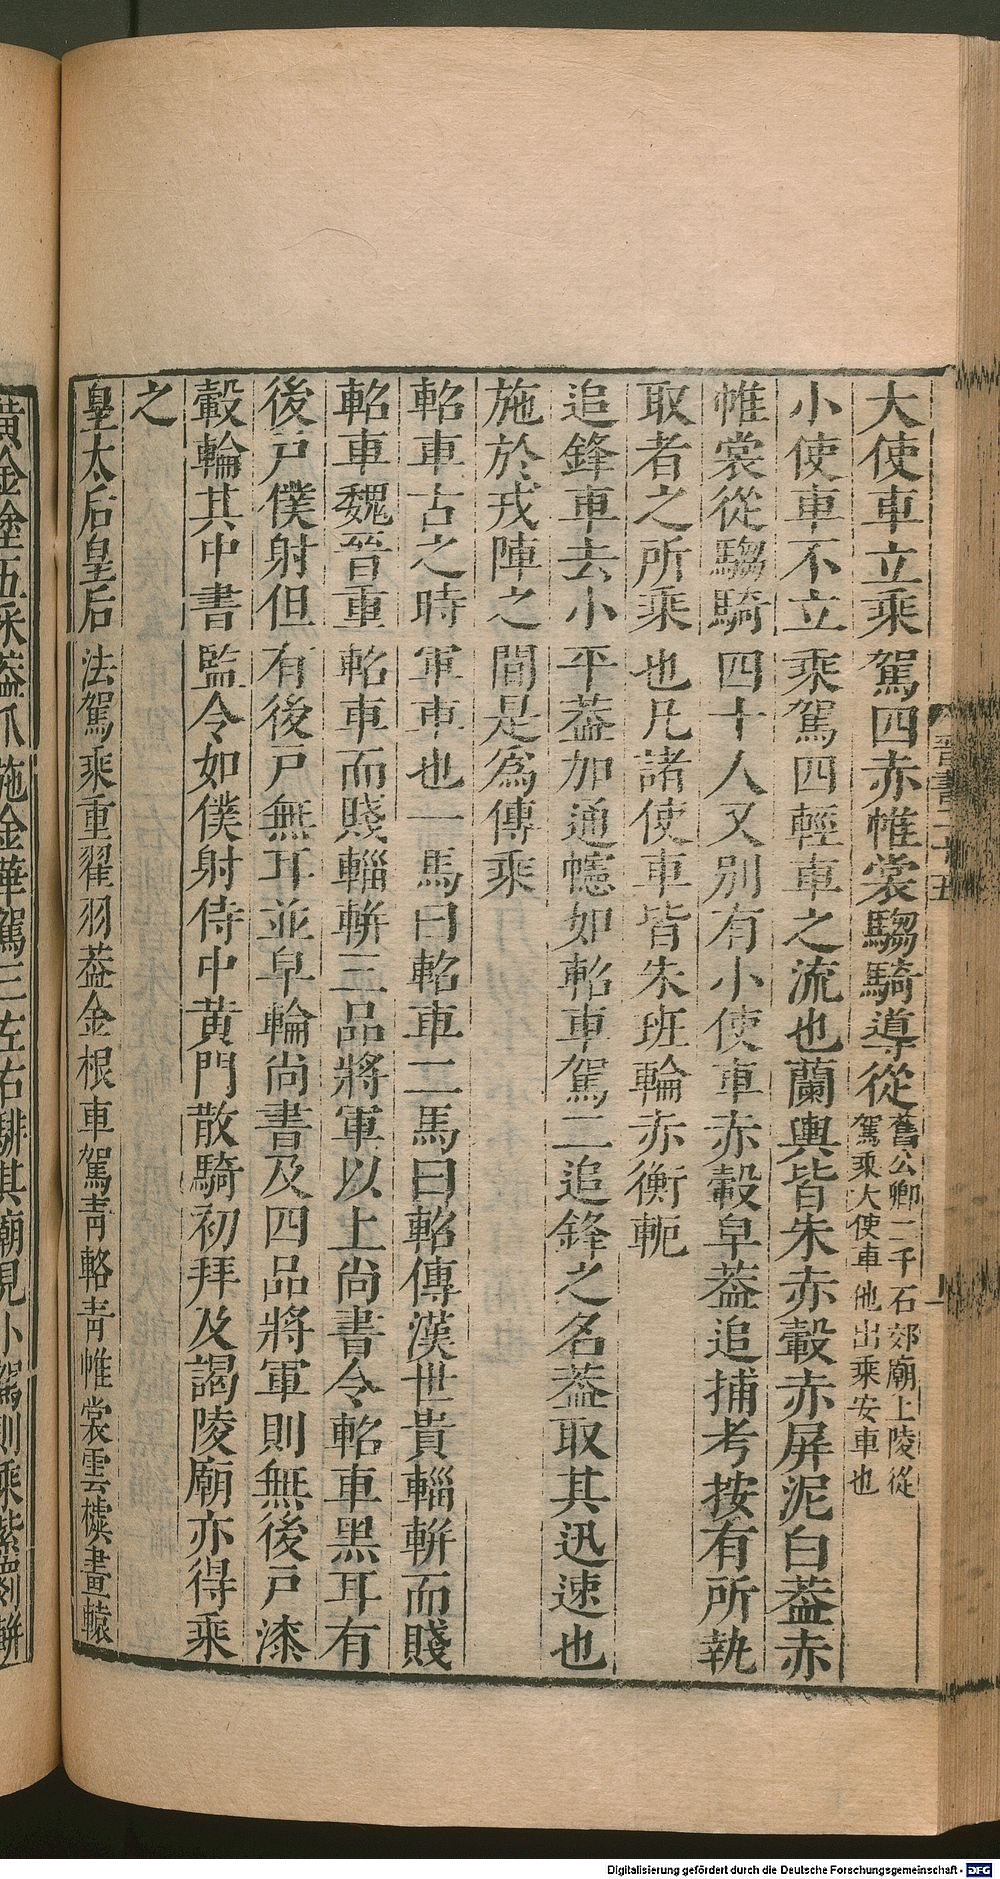 大使車立乘駕四赤帷裳騶騎導從舊公卿二千石郊廟上陵從駕乘大使車他出乘安車也
小使車不立乘駕四輕車之流也蘭輿皆朱赤轂赤屏泥白葢赤
帷裳從騶騎四十人又別有小使車赤轂皁葢追捕考按有所執
取者之所乘也凡諸使車皆朱班輪赤衡軛
追鋒車去小平葢加通幰如軺車駕二追鋒之名葢取其迅速也
施於戎陣之間是爲傳乘
軺車古之時軍車也一馬曰軺車二馬曰軺傳漢世貴輜軿而賤
軺車魏晉重軺車而賤輜軿三品將軍以上尚書令軺車黑耳有
後戸僕射但有後戸無耳並皁輪尚書及四品將軍則無後戸漆
轂輪其中書監令如僕射侍中黃門散騎初拜及謁陵廟亦得乘
之
皇太后皇后法駕乘重翟羽葢金根車駕青輅青帷裳雲㯫畫轅
黃金塗五采葢爪施金華駕三左右騑其廟見小駕則乘紫罽軿
晉書二十五
Digitalisierung gefördert durch die Deutsche Forschungsgemeinschaft - DFG